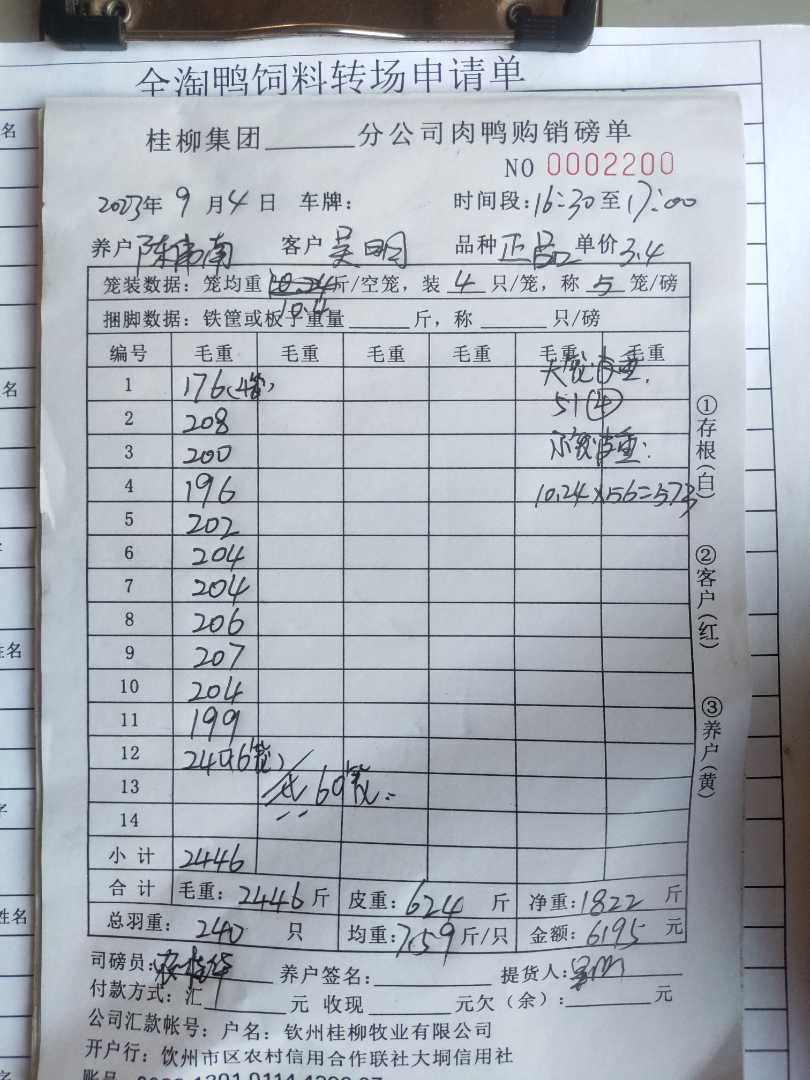 全淘鸭饲料转场申请单
桂柳集团______分公司肉鸭购销磅单
NO 0002200
2023年 9 月 4 日 车牌: 时间段:16:30至17:00
养户 陈伟南 客户 吴明 品种 正品 单价3.4
笼装数据:笼均重 10.24斤/空笼,装 4 只/笼,称 5 笼/磅
捆脚数据:铁筐或板子重量______斤,称______只/磅
编号 毛重 毛重 毛重 毛重 毛重 毛重
1 176(4笼)
51(4)
2 208
3 200
4 196 10.24×56=573
5 202
6 204
7 204
8 206
9 207
10 204
11 199
12 240(6笼)
13 60笼
14
小计 2446
合计 毛重:2446斤 皮重:624斤 净重:1822斤
总羽重:240只 均重:7.59斤/只 金额:6195元
司磅员: 养户签名:______ 提货人:吴明
付款方式:汇______元 收现______元欠(余):______元
公司汇款帐号:户名:钦州桂柳牧业有限公司
开户行:钦州市区农村信用合作联社大垌信用社
①存根(白)
②客户(红)
③养户(黄)